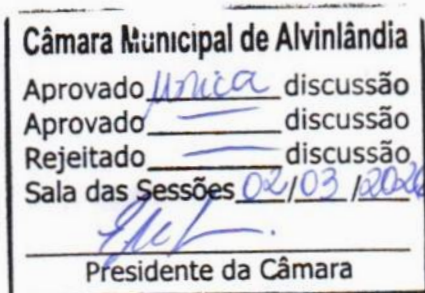 Câmara Municipal de Alvinlândia
Aprovado única discussão
Aprovado — discussão
Rejeitado — discussão
Sala das Sessões 02/03/2026
Presidente da Câmara